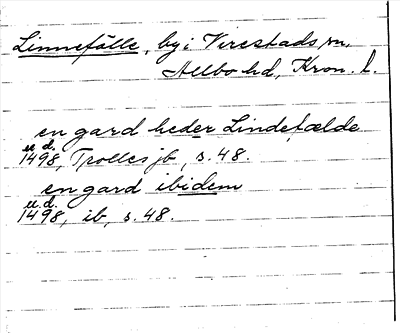 Linnefälle, by i Virestads sn,
Allbo hd, Kron. l.
en gard heder Lindefælde
u.d.
1498, Trolles jb, s. 48.
en gard ibidem
u.d.
1498, ib, s. 48.